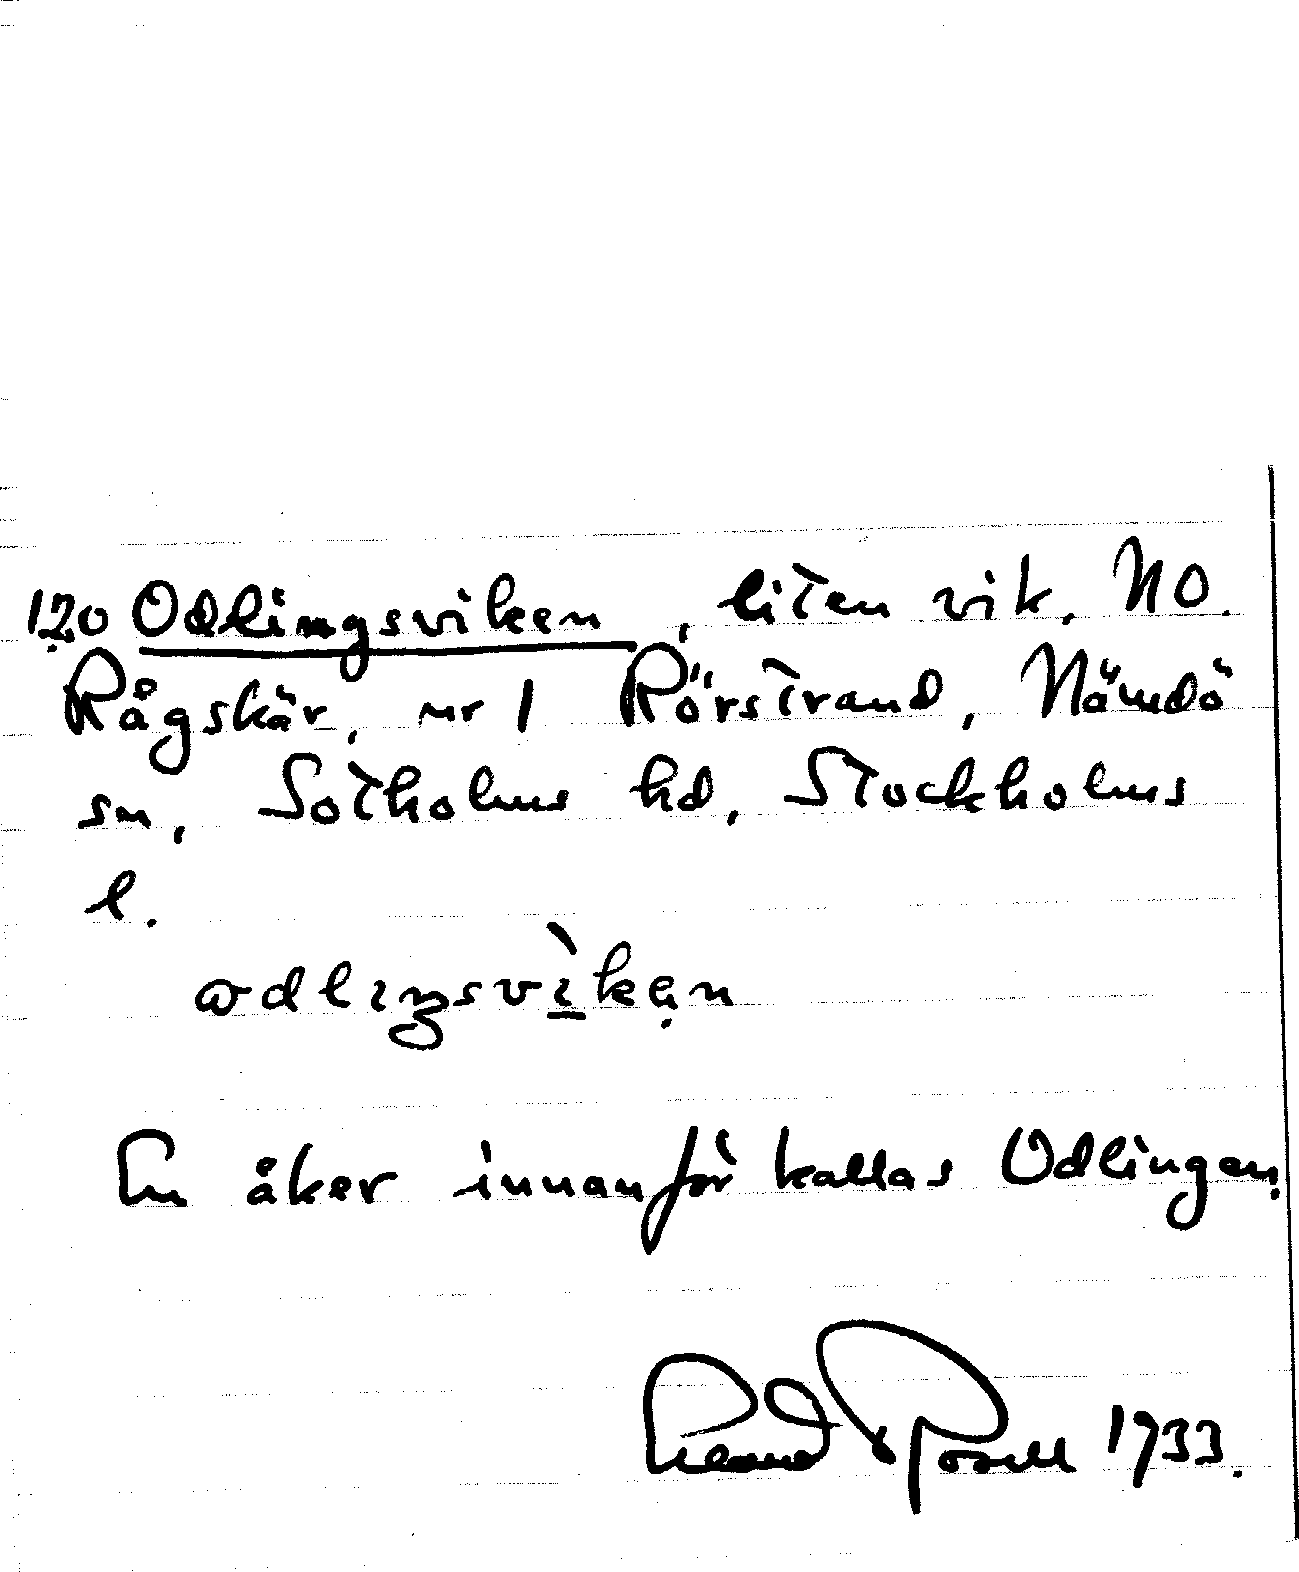 120 Odlingsviken, liten vik, NO.
Rågskär, nr 1 Rörstrand, Nämdö
sn, Sotholms hd, Stockholms
l.
ɷdlıŋsvìkęn
En åker innanför kallas Odlingen.
1933.